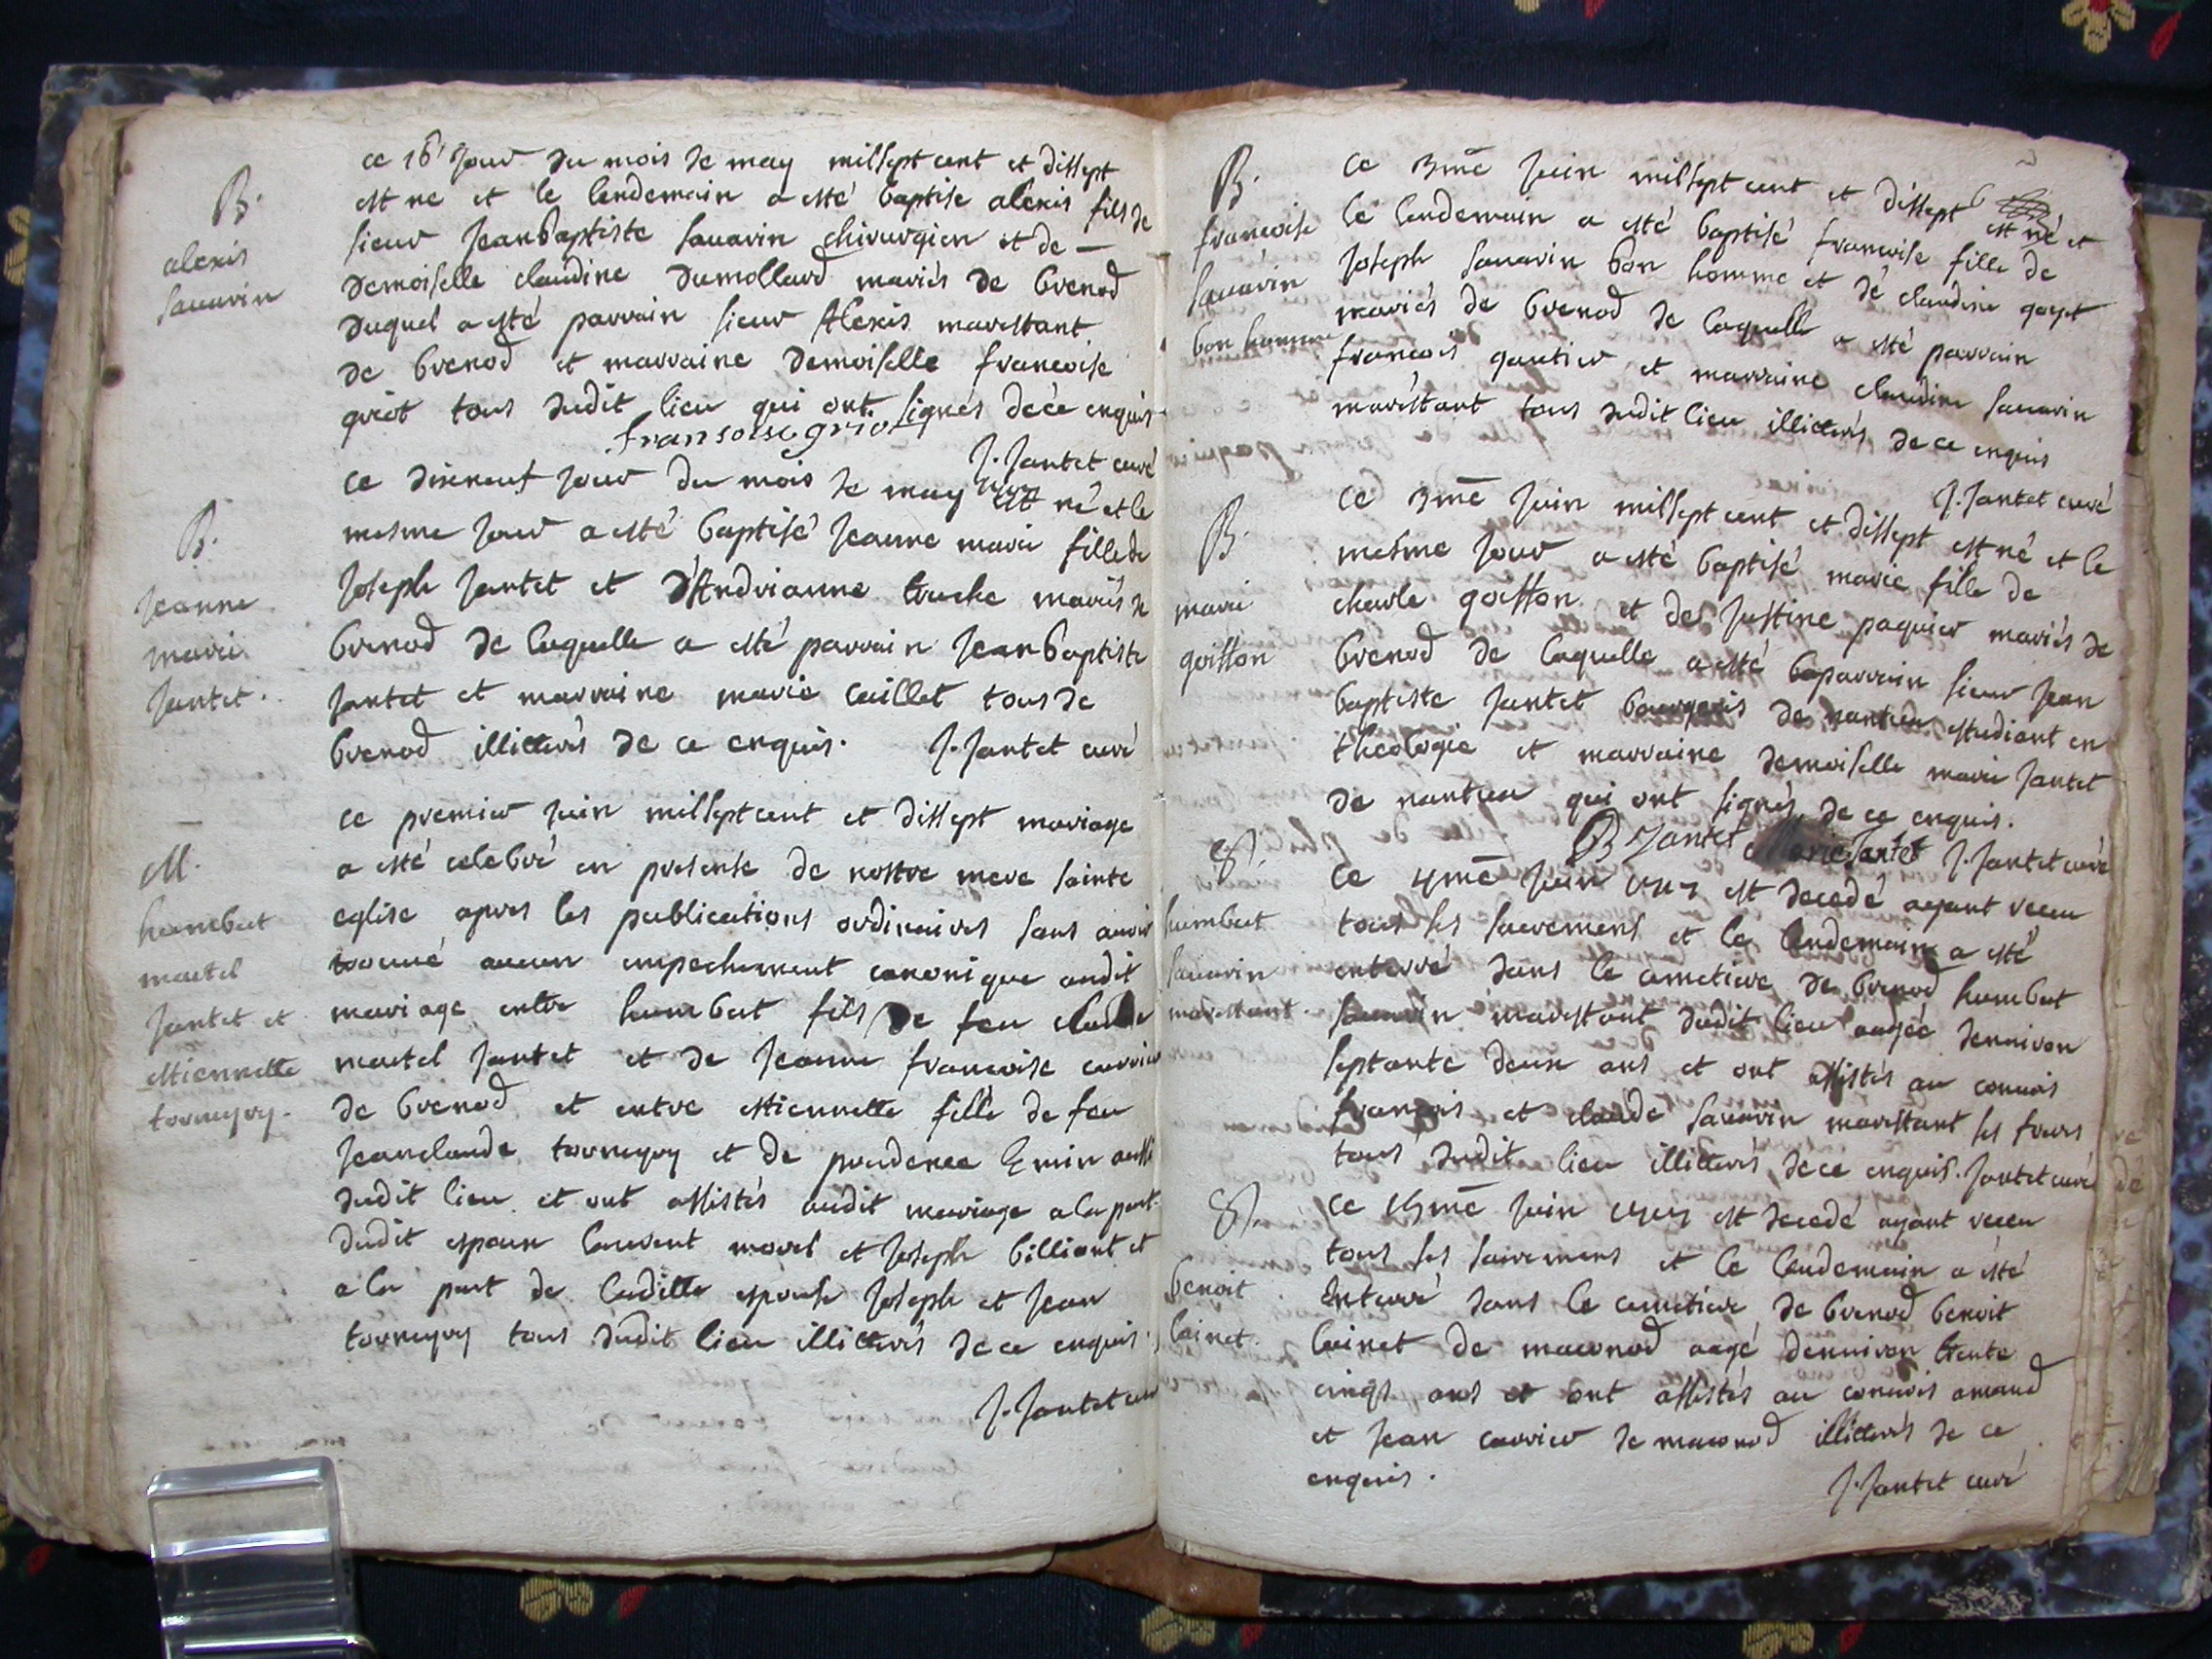 B.
alexis
sauarin
ce 16 jour du mois de may mil sept cent et dissept
est ne et le lendemain a esté baptise alexis fils de
sieur jean baptiste sauarin chirurgien et de —
demoiselle claudine dumollard mariés de brenod
duquel a esté parrain sieur Alexis marestant
de brenod et marraine demoiselle francoise
griot tous dudit lieu qui ont signés de ce enquis
fransoise griot
J. Jantet curé
B.
jeanne
marie
jantet.
ce dixneuf jour du mois de may 1717 est né et le
mesme jour a esté baptisé jeanne marie fille de
joseph jantet et d'Andrianne truche mariés de
brenod de laquelle a esté parrain jean baptiste
jantet et marraine marie caillet tous de
brenod illiterés de ce enquis. J. Jantet curé
M.
humbert
martel
jantet et
estiennette
torneyry.
ce premier juin mil sept cent et dissept mariage
a esté celebré en presense de nostre mere sainte
eglise apres les publications ordinaires sans auoir
trouué aucun empechement canonique audit
mariage entre humbert fils de feu claude
martel jantet et de jeanne francoise carrier
de brenod et entre estiennette fille de feu
jean claude torneyry et de prudence Emin aussi
dudit lieu et ont assistés audit mariage a la part
dudit espoux laurent morel et joseph billiont et
a la part de laditte espouse joseph et jean
torneyry tous dudit lieu illiterés de ce enquis.
J. Jantet curé
B.
francoise
sauarin
bon homme
ce 3me juin mil sept cent et dissept est né et
le lendemain a esté baptisé francoise fille de
joseph sauarin bon homme et de claudine goyet
mariés de brenod de laquelle a esté parrain
francois gautier et marraine claudine sauarin
marestant tous dudit lieu illiterés de ce enquis
J. Jantet curé
B.
marie
goiffon
ce 3me juin mil sept cent et dissept est né et le
mesme jour a esté baptisé marie fille de
charle goiffon et de justine paquier mariés de
brenod de laquelle a esté baparrain sieur jean
baptiste jantet bourgeois de nantua estudiant en
theologie et marraine demoiselle marie jantet
de nantua qui ont signés de ce enquis.
B Jantet Marie Jantet J. Jantet curé
S.
humbert
sauarin
marestant.
ce 4me juin 1717 est decedé ayant receu
tous ses sacremens et le lendemain a esté
enterré dans le cimetiere de brenod humbert
sauarin marestant dudit lieu aagée denuiron
septante deux ans et ont assistés au conuois
francois et claude sauarin marestant ses freres
tous dudit lieu illiterés de ce enquis. Jantet curé
S.
benoit
lainet.
ce 15me juin 1717 est decedé ayant receu
tous ses sacremens et le lendemain a esté
Enterré dans le cimetiere de brenod benoit
lainet de maconod aagé denuiron trente
cinqs ans et ont assistés au conuois amand
et jean carrier de maconod illiterés de ce
enquis.
J. Jantet curé